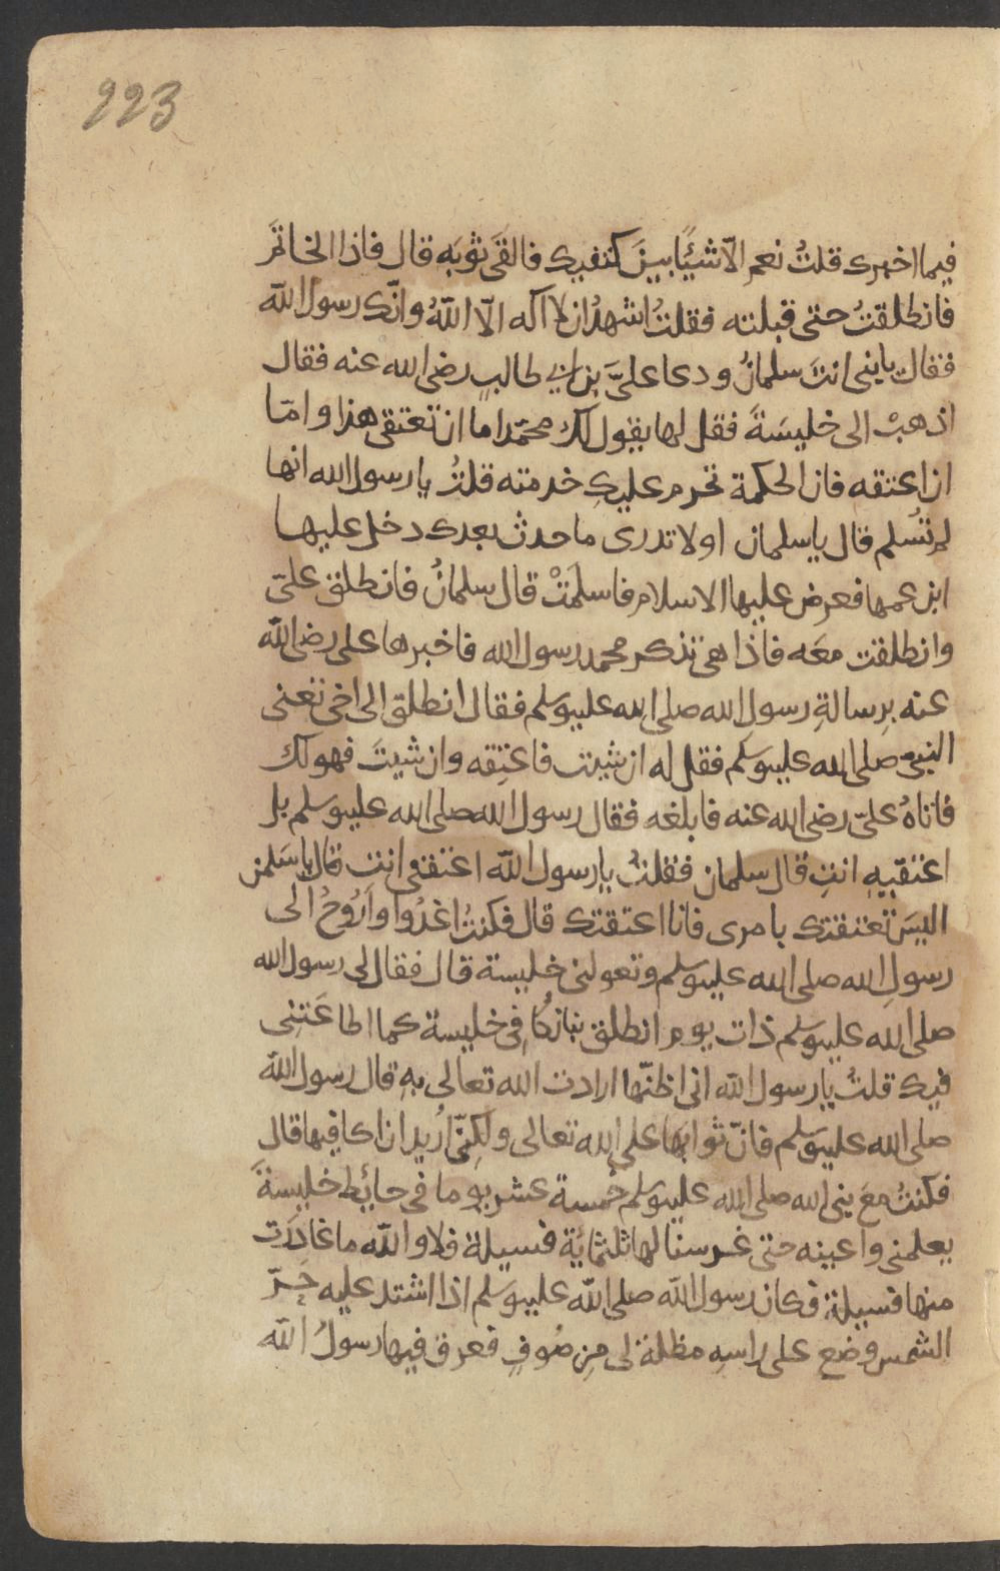 223
فيما اخبرك قلتُ نعم الّا شيئًا بينَ كتفيك فالقَى ثوبَه قال فاذا الخاتَم
فانطلقتُ حتى قبلته فقلتُ اشهدُ ان لا اله الّا اللهُ وانّك رسول الله
فقال يابنى انتَ سلمانُ ودعا علىَّ بن ابى طالبٍ رضى الله عنه فقال
اذهبْ الى خليسَةَ فقل لها يقول لك محمّد اما ان تعتقى هذا وامّا
ان اعتقه فان الحكمة تحرم عليكِ خدمته قلتُ يا رسول الله انها
لم تُسلم قال يا سلمان اولا تدرى ما حدث بعدك دخل عليها
ابن عمها فعرض عليها الاسلام فاسلمَتْ قال سلمانُ فانطلق علىّ
وانطلقت معَه فاذا هى تذكر محمد رسول الله فاخبرها على رضى الله
عنه بِرسالةِ رسول الله صلى الله عليه وسلم فقال انطلق الى اخى تعنى
النبىّ صلى الله عليه وسلم فقل له ان شيت فاعتِقه وان شيتَ فهو لك
فاتاهُ علىّ رضى الله عنه فابلغه فقال رسول الله صلى الله عليه وسلم بل
اعتقيهِ انتِ قال سلمان فقلتُ يا رسول الله اعتقنى انت قال يا سَلمن
اليسَ تعتقتك بامرى فانا اعتقتك قال فكنتُ اغدُوا واَرُوحُ الى
رسولِ الله صلى الله عليه وسلم وتعولنى خليسة قال فقال لى رسول الله
صلى الله عليه وسلم ذات يوم انطلق بنا نكافى خليسة كما اطاعَتنِى
فيك قلتُ يا رسول الله انى اظنّها ارادت الله تعالى بهِ قال رسول الله
صلى الله عليه وسلم فانّ ثوابها على الله تعالى ولكِنّى اُريد ان اكافيها قال
فكنتُ معَ نبى الله صلى الله عليه وسلم خمسة عشر يوما فى حائِط خليسةَ
يعلمنى واعينه حتى غرسنا لها ثلثمايُة فسيلة فلا والله ما غادَرَت
منها فسيلة فكان رسول الله صلى الله عليه وسلم اذا اشتد عليه حَرّ
الشمس وضع على راسِهِ مظلة لى مِن صُوفٍ فعرق فيها رسولُ الله